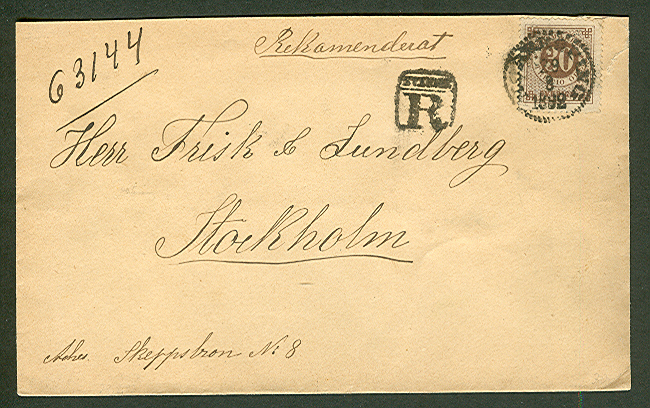 63144
Rekomenderat
R
1892
Herr Frisk & Lundberg
Stockholm
Adres. Skeppsbron No 8